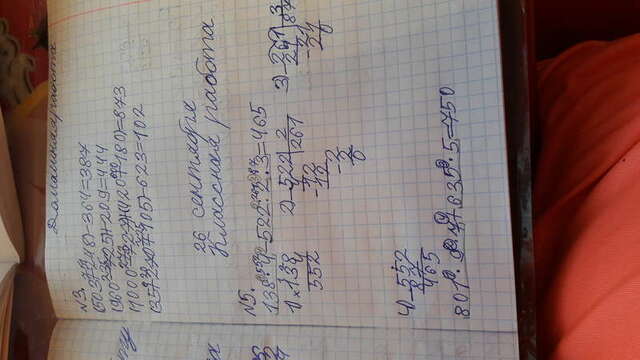 Домашняя работа
№3.
(503+248)-364=387
(960-725)+209=444
(1000-727)+(420+180)=873
(357+270+105)-623=102
26 сентября
Классная работа
№5.
138·4-522:2:3=465
1) ×138 2) -522 2 3) -261 3
4 4 261 24 87
552 -12 -21
12 21
-2 0
2
0
4) -552
87
465
801:9·7+635:5=750